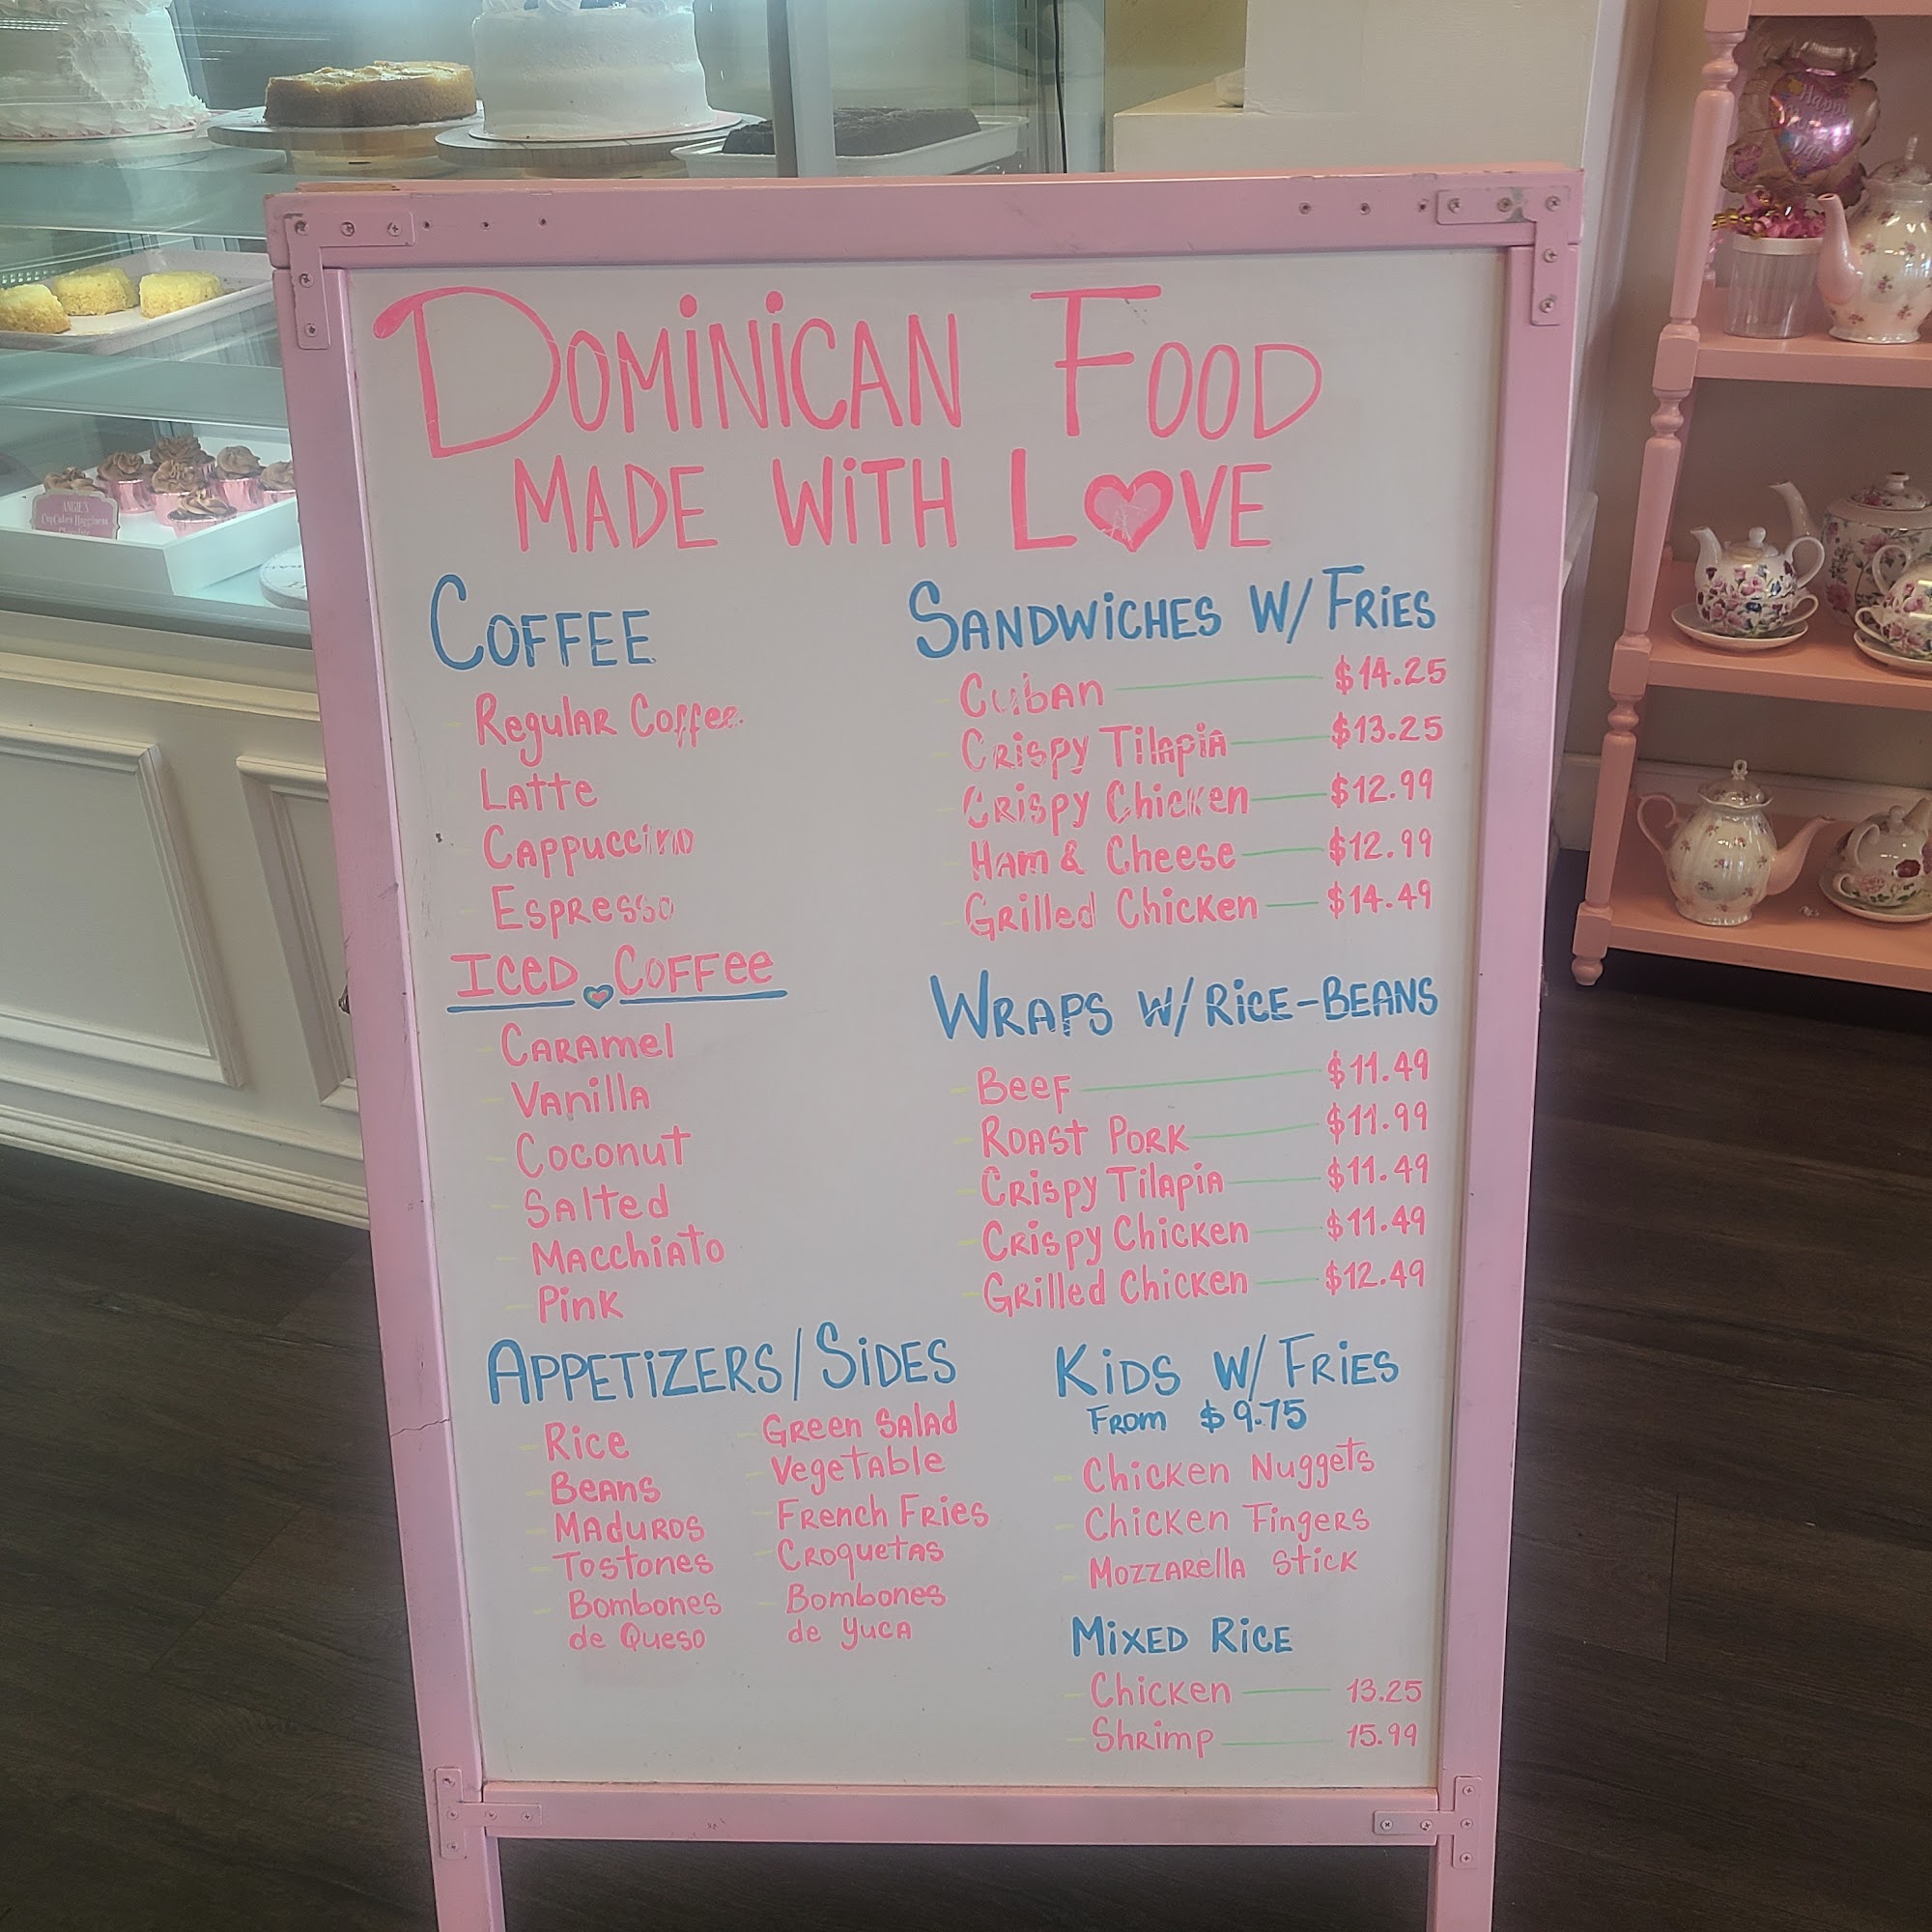 DOMINICAN FOOD
MADE WITH LOVE
COFFEE
Regular Coffee
Latte
Cappuccino
Espresso
ICED COFFEE
Caramel
Vanilla
Coconut
Salted
Macchiato
Pink
APPETIZERS/SIDES
Rice
Beans
Maduros
Tostones
Bombones
de Queso
Green Salad
Vegetable
French Fries
Croquetas
Bombones
de Yuca
SANDWICHES W/ FRIES
Cuban $14.25
Crispy Tilapia $13.25
Crispy Chicken $12.99
Ham & Cheese $12.99
Grilled Chicken $14.49
WRAPS W/ RICE-BEANS
Beef $11.49
Roast Pork $11.99
Crispy Tilapia $11.49
Crispy Chicken $11.49
Grilled Chicken $12.49
KIDS W/ FRIES
From $9.75
Chicken Nuggets
Chicken Fingers
Mozzarella Stick
MIXED RICE
Chicken 13.25
Shrimp 15.99
ANGIE'S
CupCakes Happiness
Happy